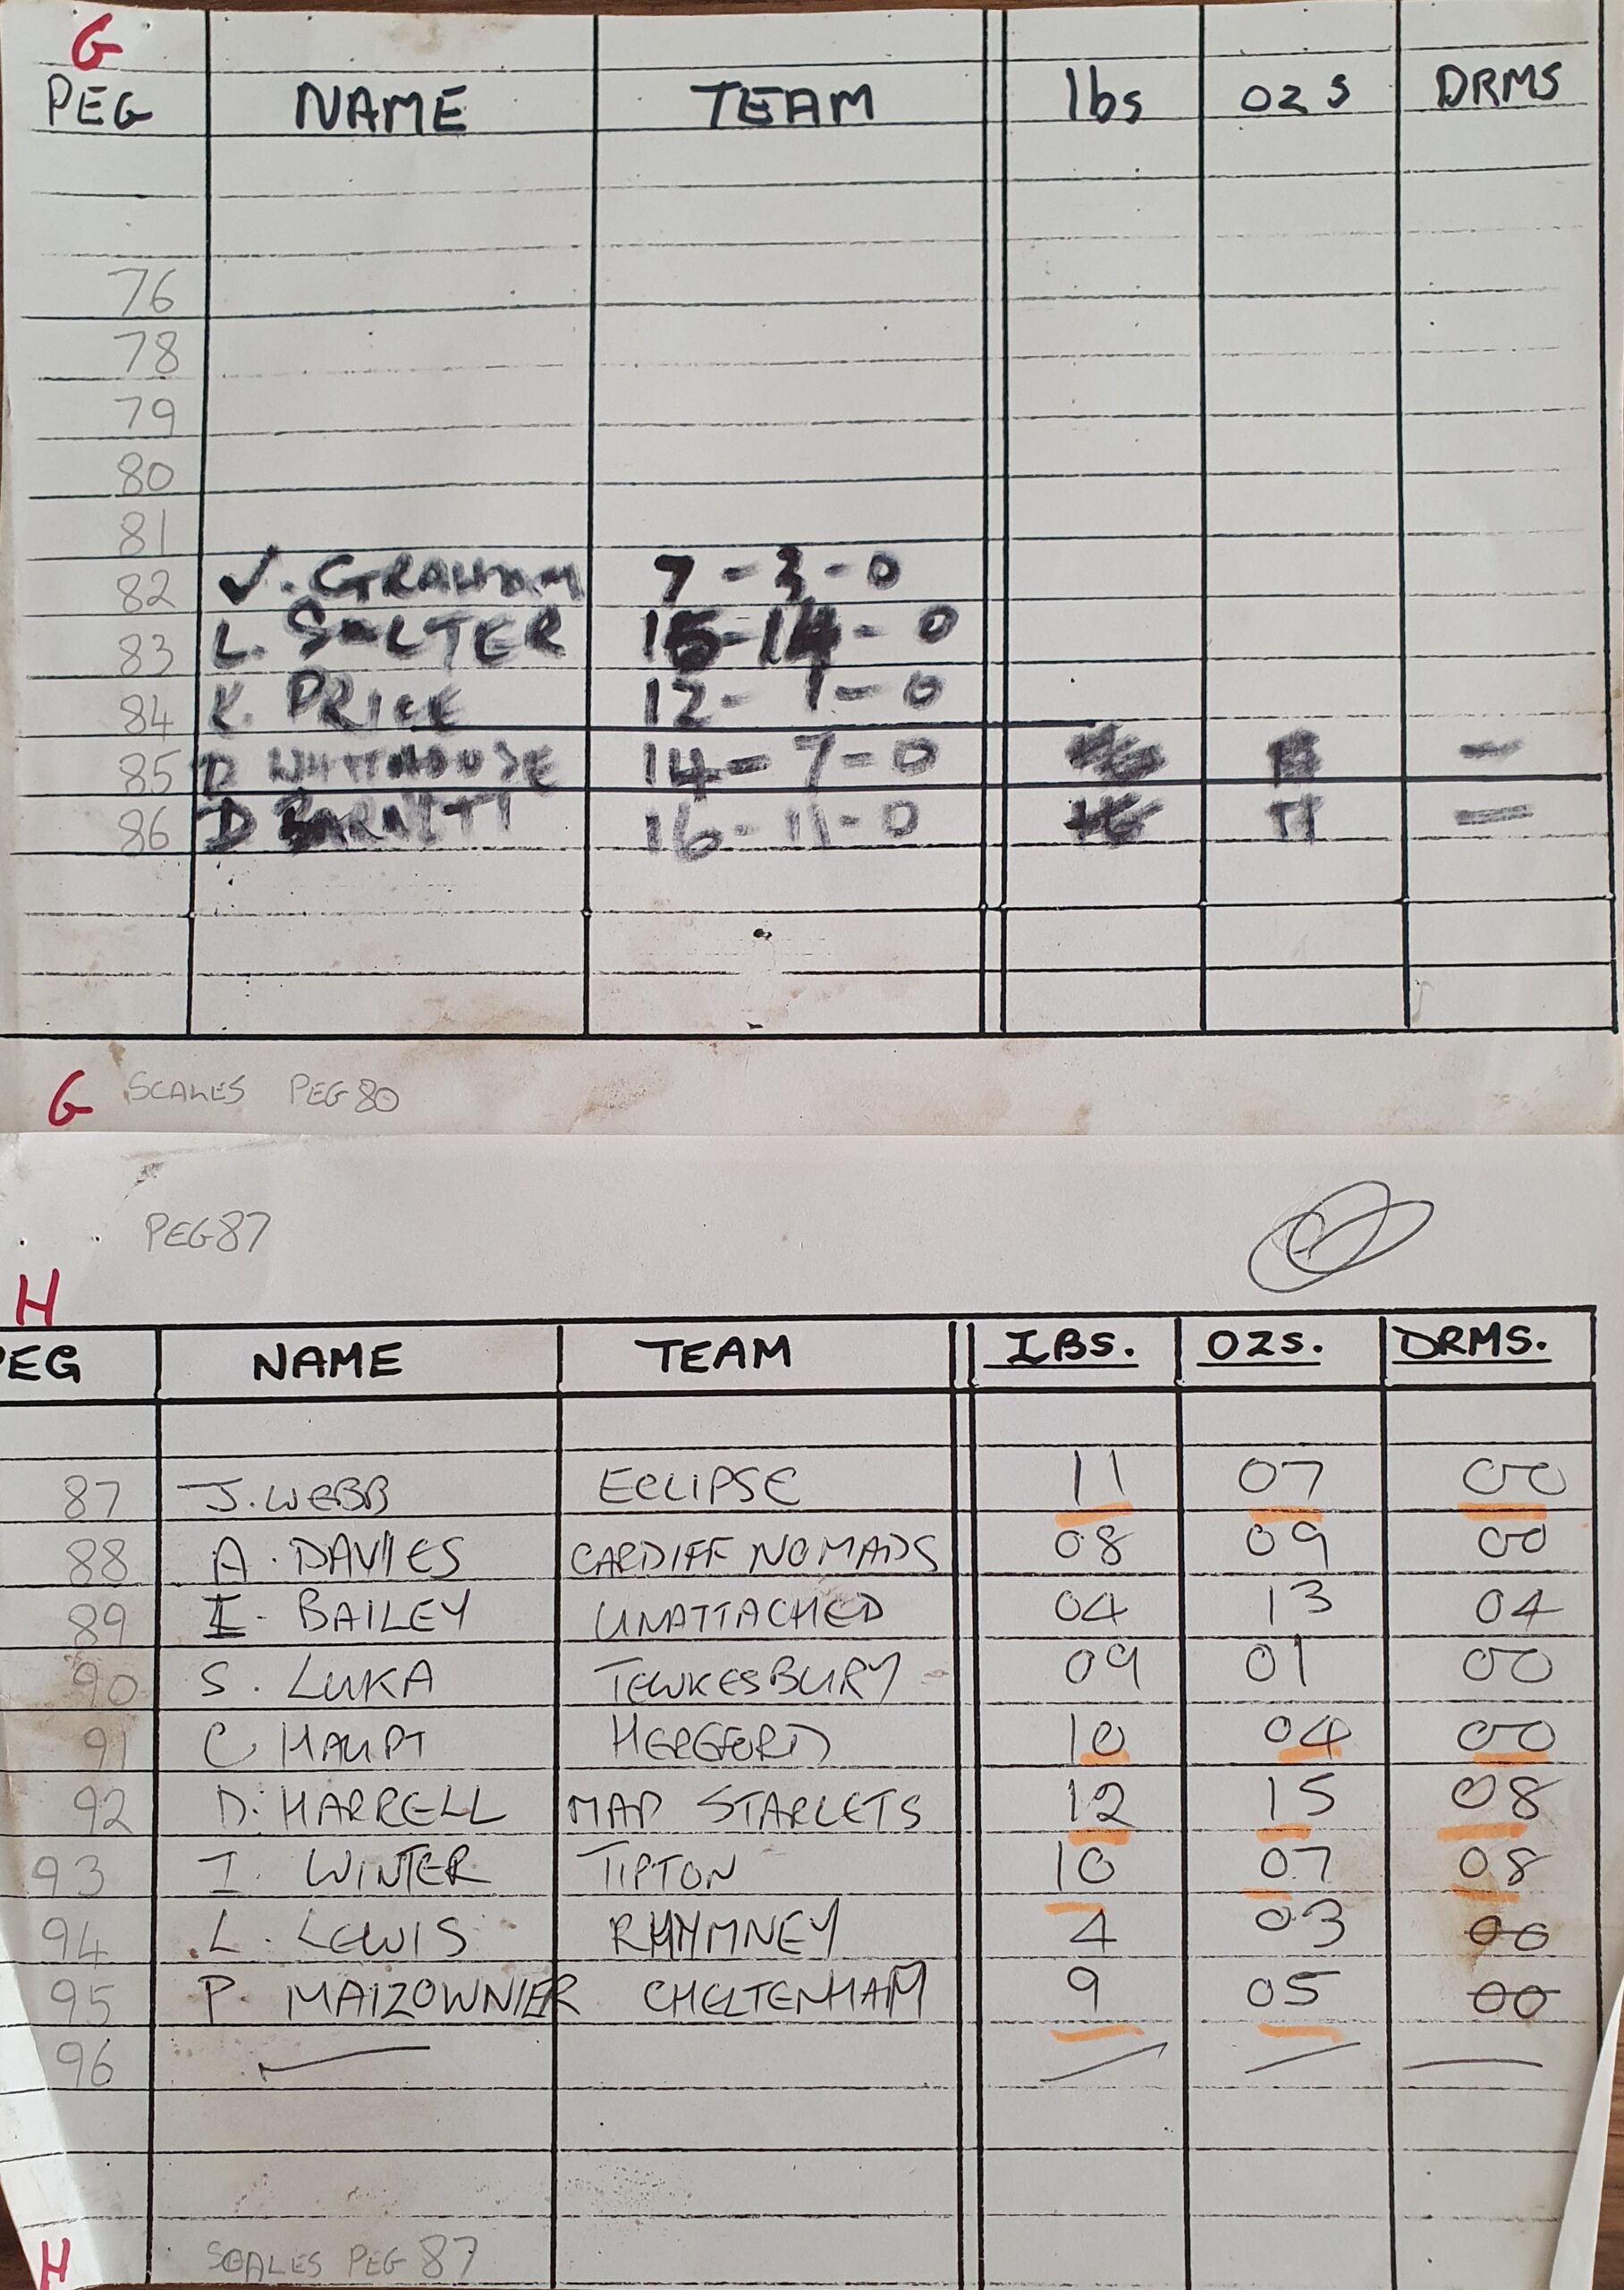 G
PEG NAME TEAM lbs ozs DRMS
76
78
79
80
81
82 J. GRAHAM 7-3-0
83 L. SALTER 15-14-0
84 K. PRICE 12-1-0
85 D WHITEHOUSE 14-7-0 -
86 D BARNETT 16-11-0 16 11 -
G SCALES PEG 80
PEG 87
H
PEG NAME TEAM LBS. OZS. DRMS.
87 J. WEBB ECLIPSE 11 07 00
88 A. DAVIES CARDIFF NOMADS 08 09 00
89 I. BAILEY UNATTACHED 04 13 04
90 S. LUKA TEWKESBURY 09 01 00
91 C HAUPT HEREFORD 10 04 00
92 D. HARRELL MAP STARLETS 12 15 08
93 I. WINTER TIPTON 10 07 08
94 L. LEWIS RHYMNEY 4 03 00
95 P. MAIZOWNIER CHELTENHAM 9 05 00
96
H SCALES PEG 87